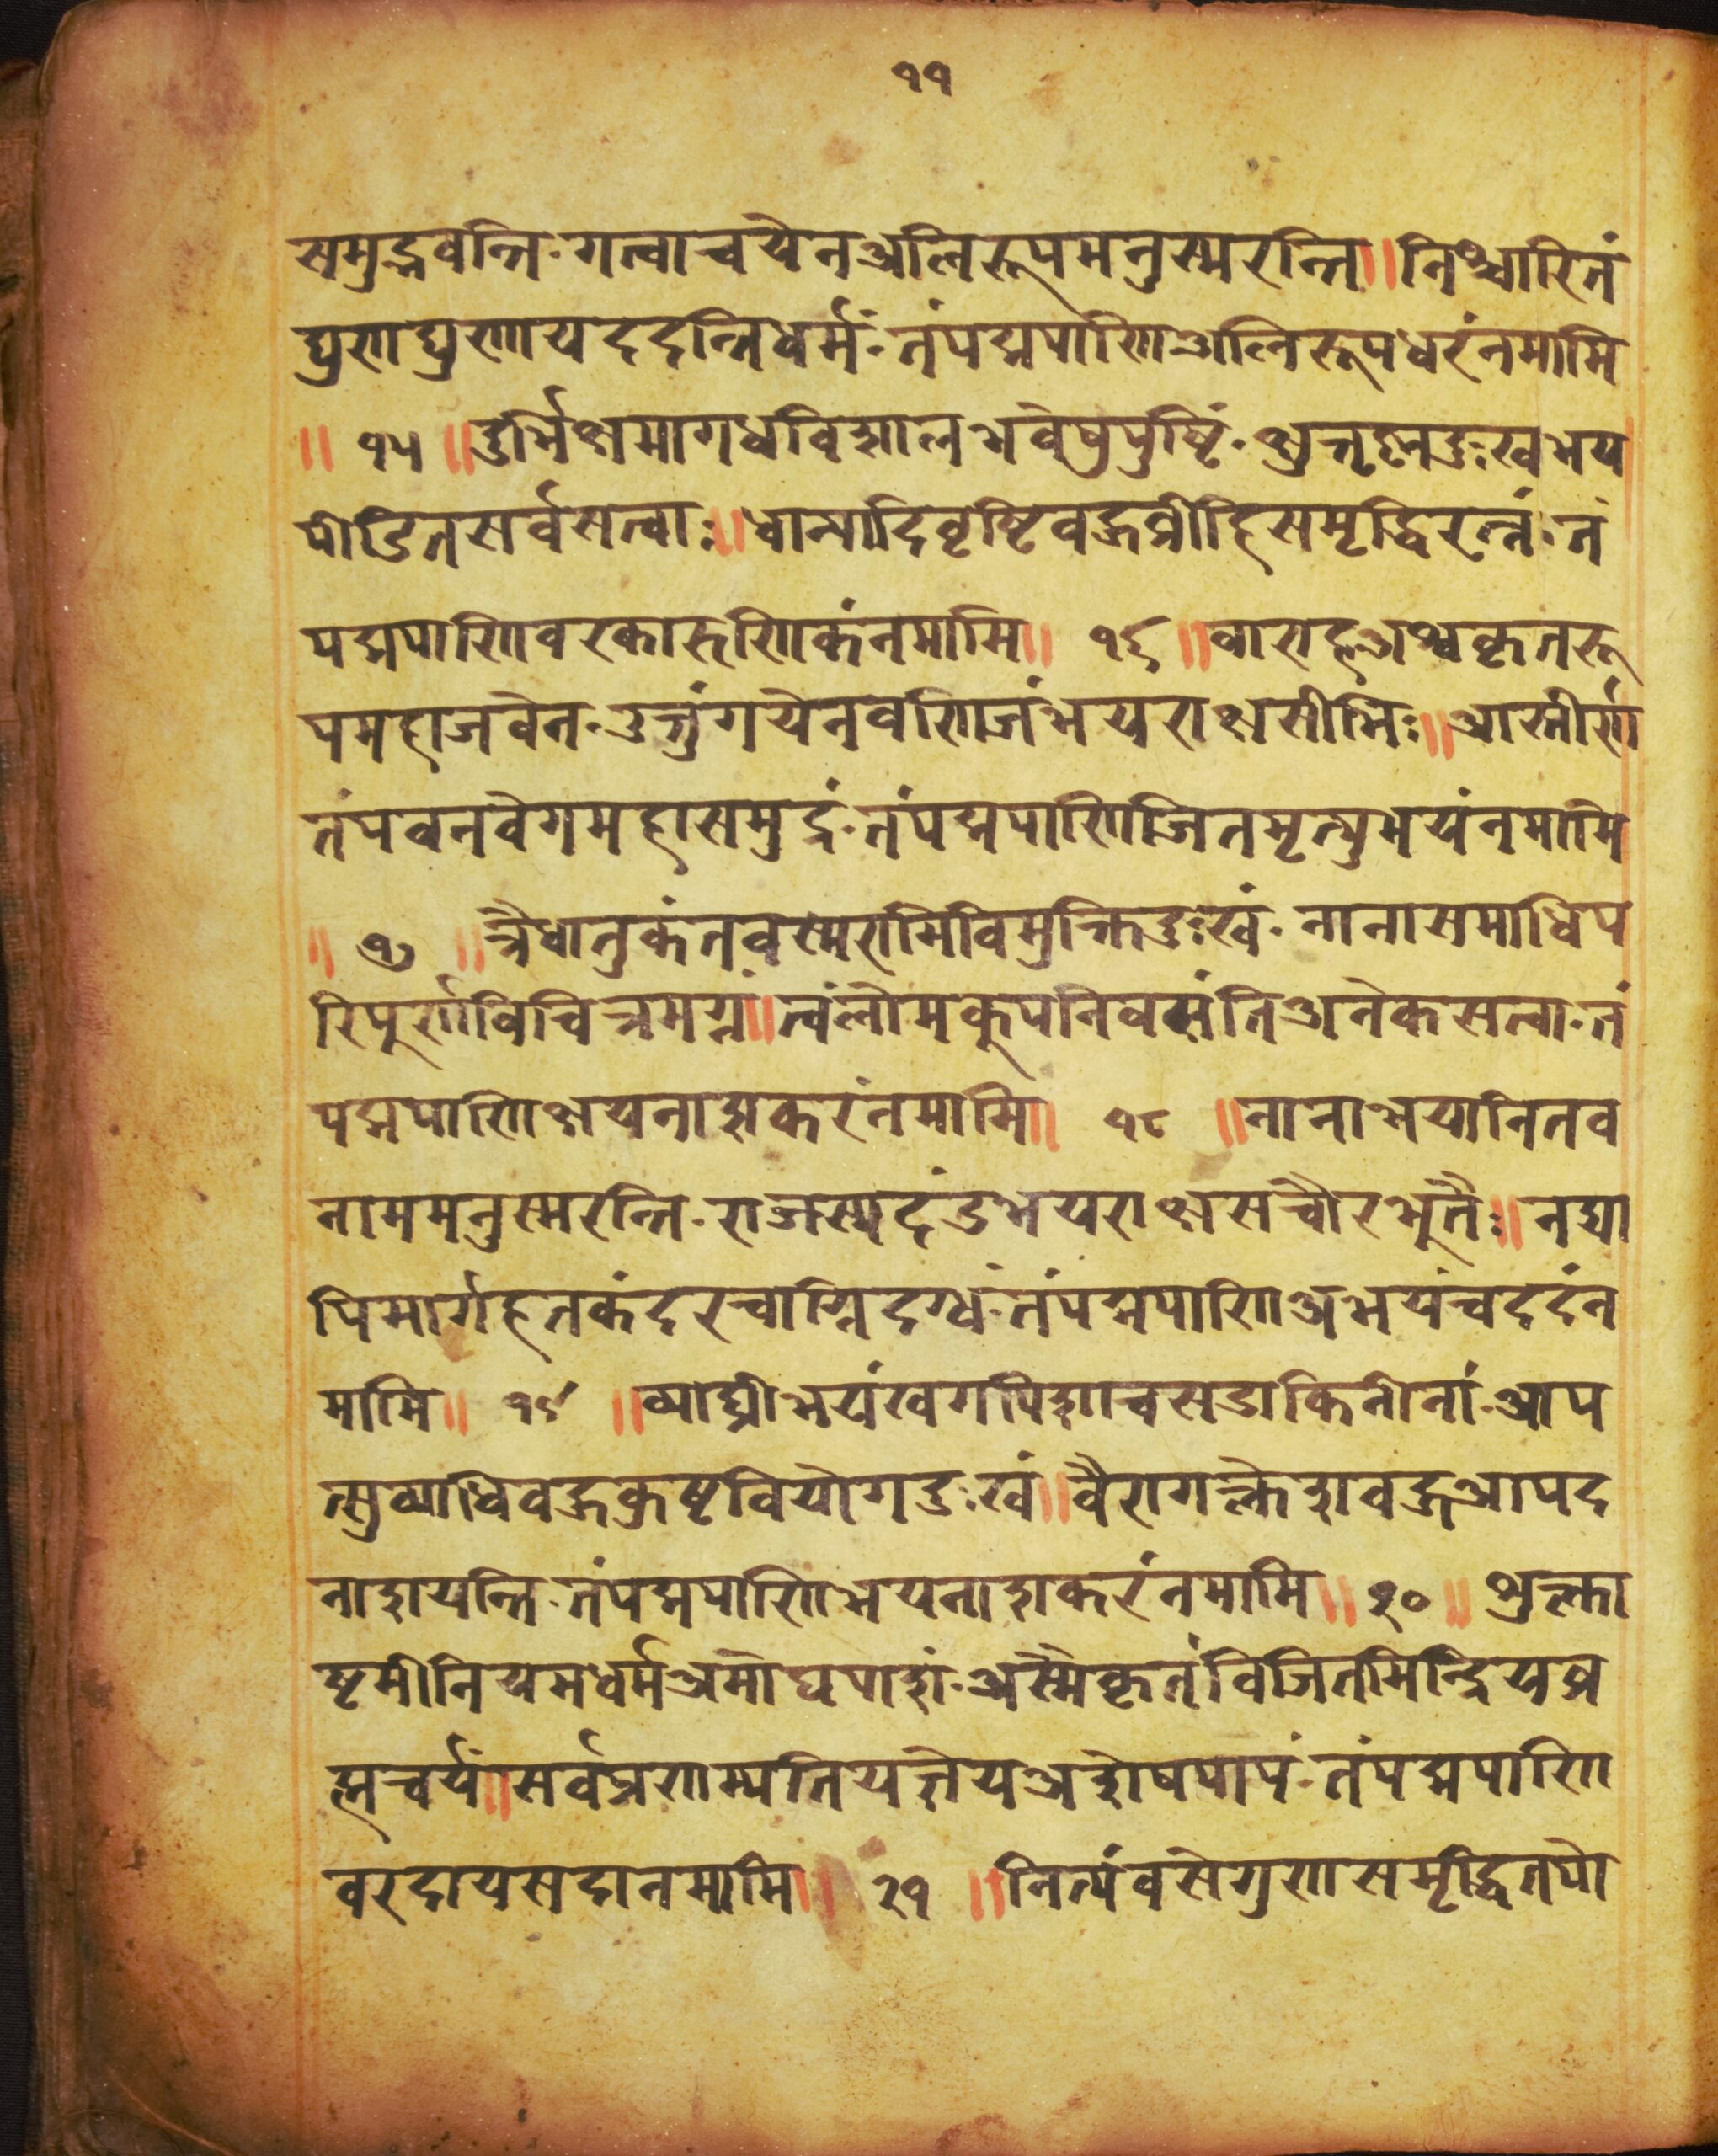 ११
समुद्भवन्ति·गत्वाचयेनअलिरूपमनुस्मरन्ति॥निश्चारितं
घुणघुणायददन्तिधर्मं·तंपद्मपाणिअलिरूपधरंनमामि
॥१५॥दुर्भिक्षमागधविशालभवेषुपुष्टिं·क्षुत्तृष्नदुःखभय
पीडितसर्वसत्वाः॥धान्यादिवृष्टिवहुव्रीहिसमृद्धिरत्नं·तं
पद्मपाणिवरकारुणिकंनमामि॥१६॥वाराहअश्वकृतरू
पमहाजवेन·उत्तुंगयेनवणिजंभयराक्षसीभिः॥आस्तीर्ण
तंपवनवेगमहासमुद्रं·तंपद्मपाणिजितमृत्युभयंनमामि
॥१७॥त्रैधातुकंतवस्मरामिविमुक्तिदुःखं·नानासमाधिप
रिपूर्णविचित्रमग्नं॥त्वंलोमकूपनिवसंतिअनेकसत्वा·तं
पद्मपाणिक्षयनाशकरंनमामि॥१८॥नानाभयानितव
नाममनुस्मरन्ति·राजस्यदंडभयराक्षसचौरभूतैः॥नद्या
पिमार्गहतकंदरचाग्निदग्धं·तंपद्मपाणिअभयंचददंन
मामि॥१९॥व्याघ्रीभयंखगपिशाचसडाकिनीनां·आप
त्सुव्याधिवहुकुष्टवियोगदुःखं॥वैरागत्क्लेशवहुआपद
नाशयन्ति·तंपद्मपाणिभयनाशकरंनमामि॥२०॥शुक्ला
ष्टमीनियमधर्मअमोघपाशं·अस्मैकृतंविजितमिन्द्रियव्र
ह्मचर्यं॥सर्वप्रणाम्यतियत्नेयअशेषपापं·तंपद्मपाणि
वरदायसदानमामि॥२१॥नित्यंवसेगुणसमृद्धितपो